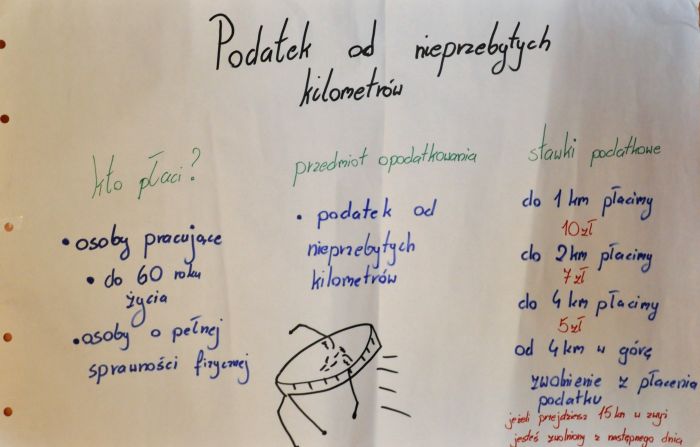 Podatek od nieprzebytych
kilometrów
kto płaci?
• osoby pracujące
• do 60 roku
życia
• osoby o pełnej
sprawności fizycznej
przedmiot opodatkowania
• podatek od
nieprzebytych
kilometrów
stawki podatkowe
do 1 km płacimy
10 zł
do 2 km płacimy
7 zł
do 4 km płacimy
5 zł
od 4 km w górę
zwolnienie z płacenia
podatku
jeżeli przejdziesz 15 km w zwyż
jesteś zwolniony z następnego dnia